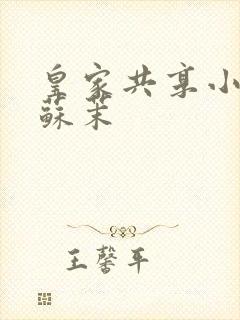 皇家共享小
蘇茉
王馨平